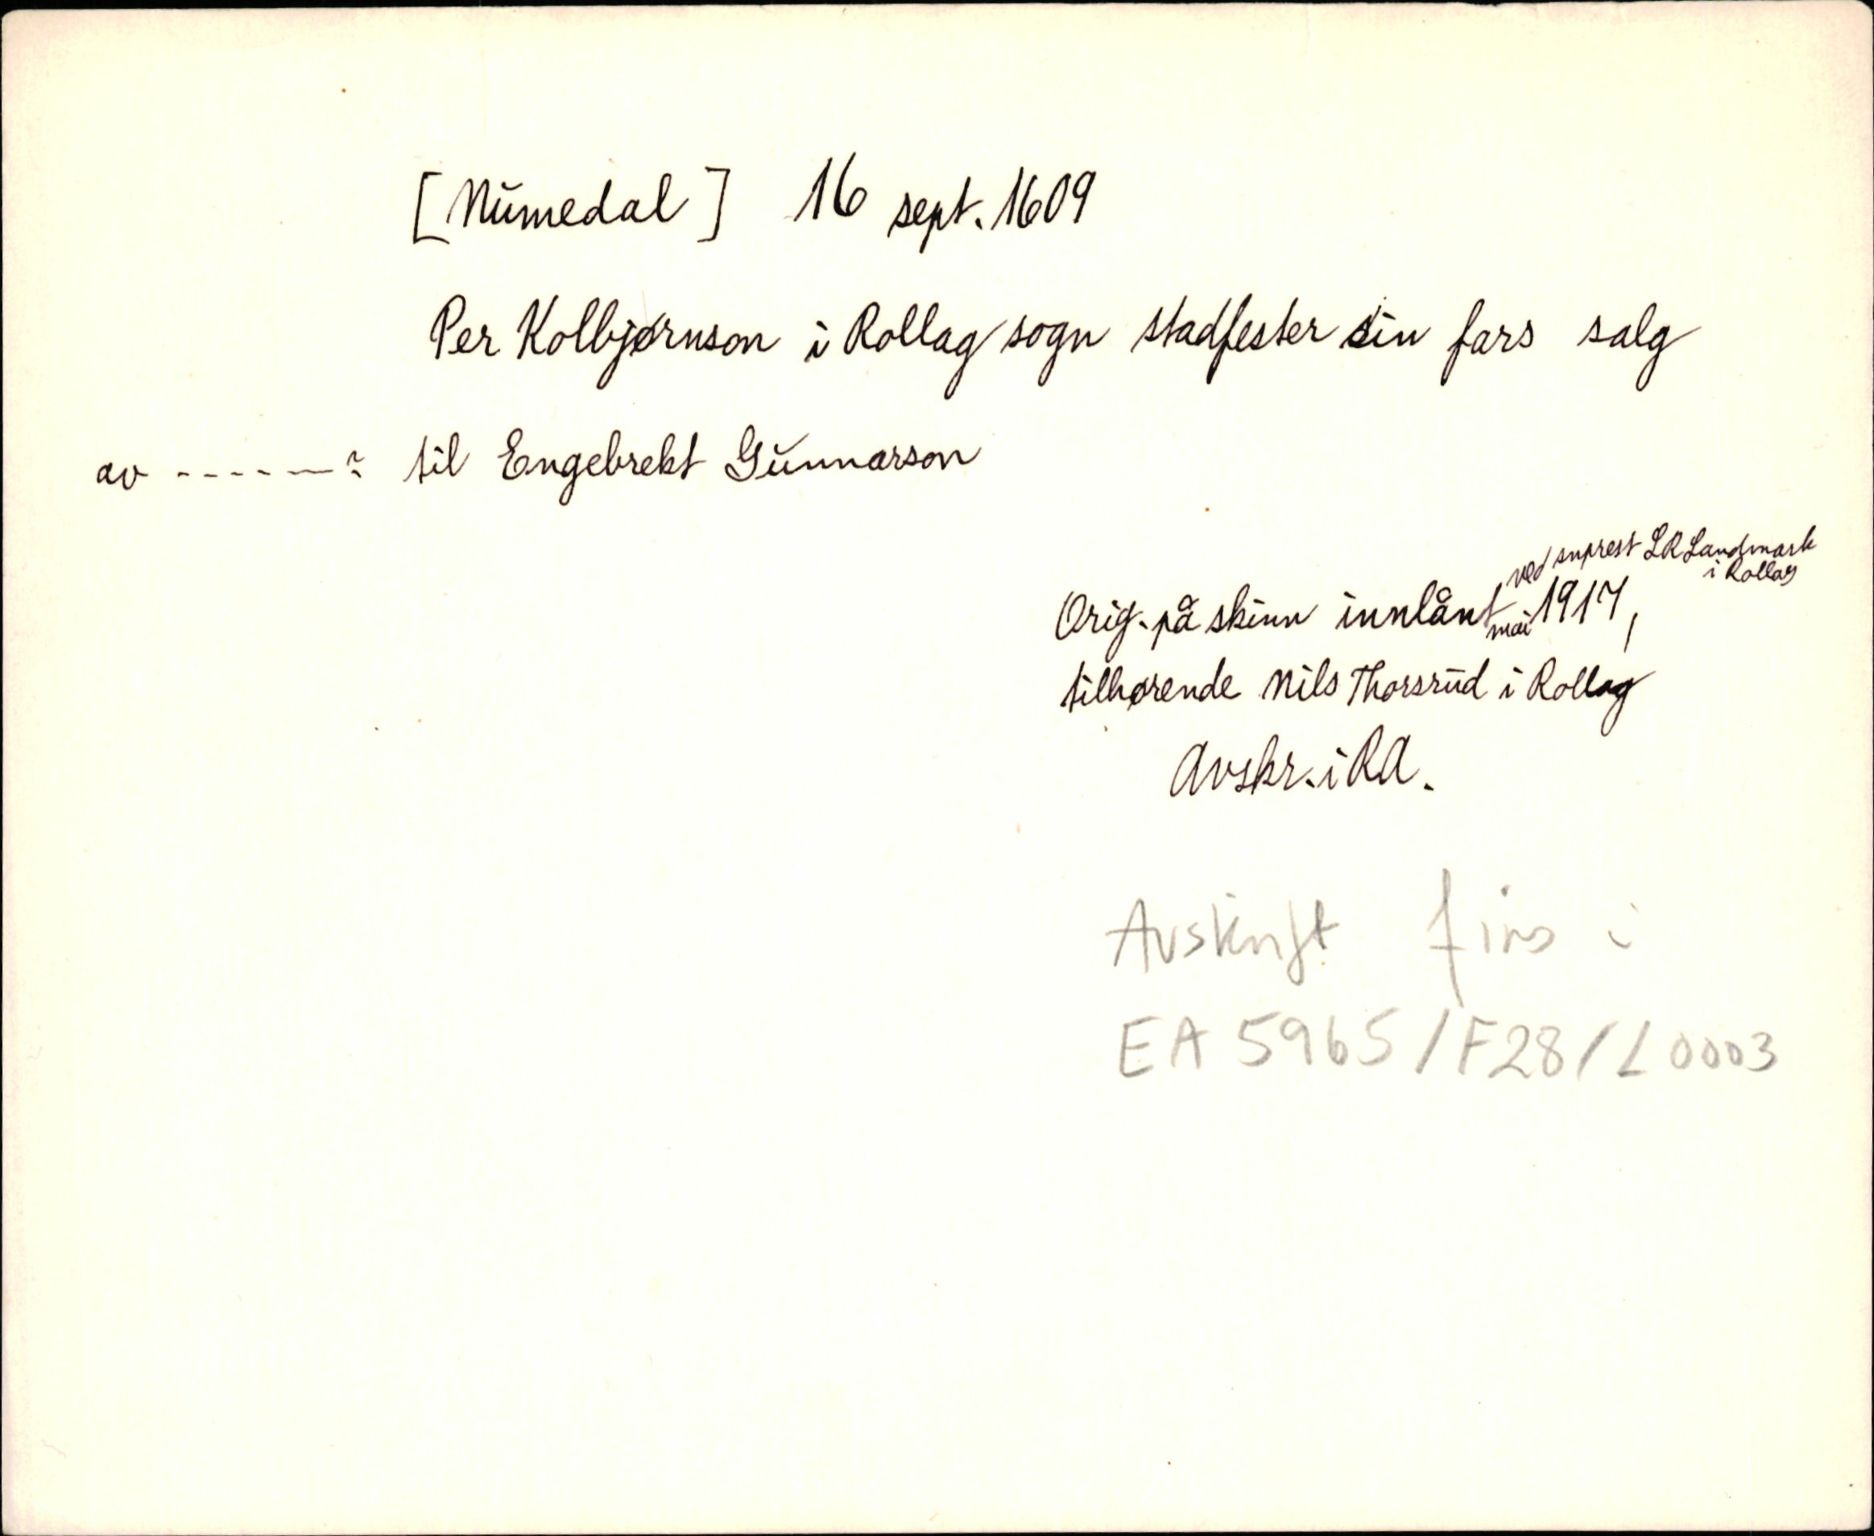 [Numedal] 16 sept. 1609
Per Kolbjørnson i Rollag sogn stadfester sin fars salg
av ------? til Engebrekt Gunnarson
ved snprest LR Landmark
i Rollag
Orig. på skinn innlånt mai 1917,
tilhørende Nils Thorsrud i Rollag
Avskr. i RA.
Avskrift fins i
EA 5965/F28/L0003